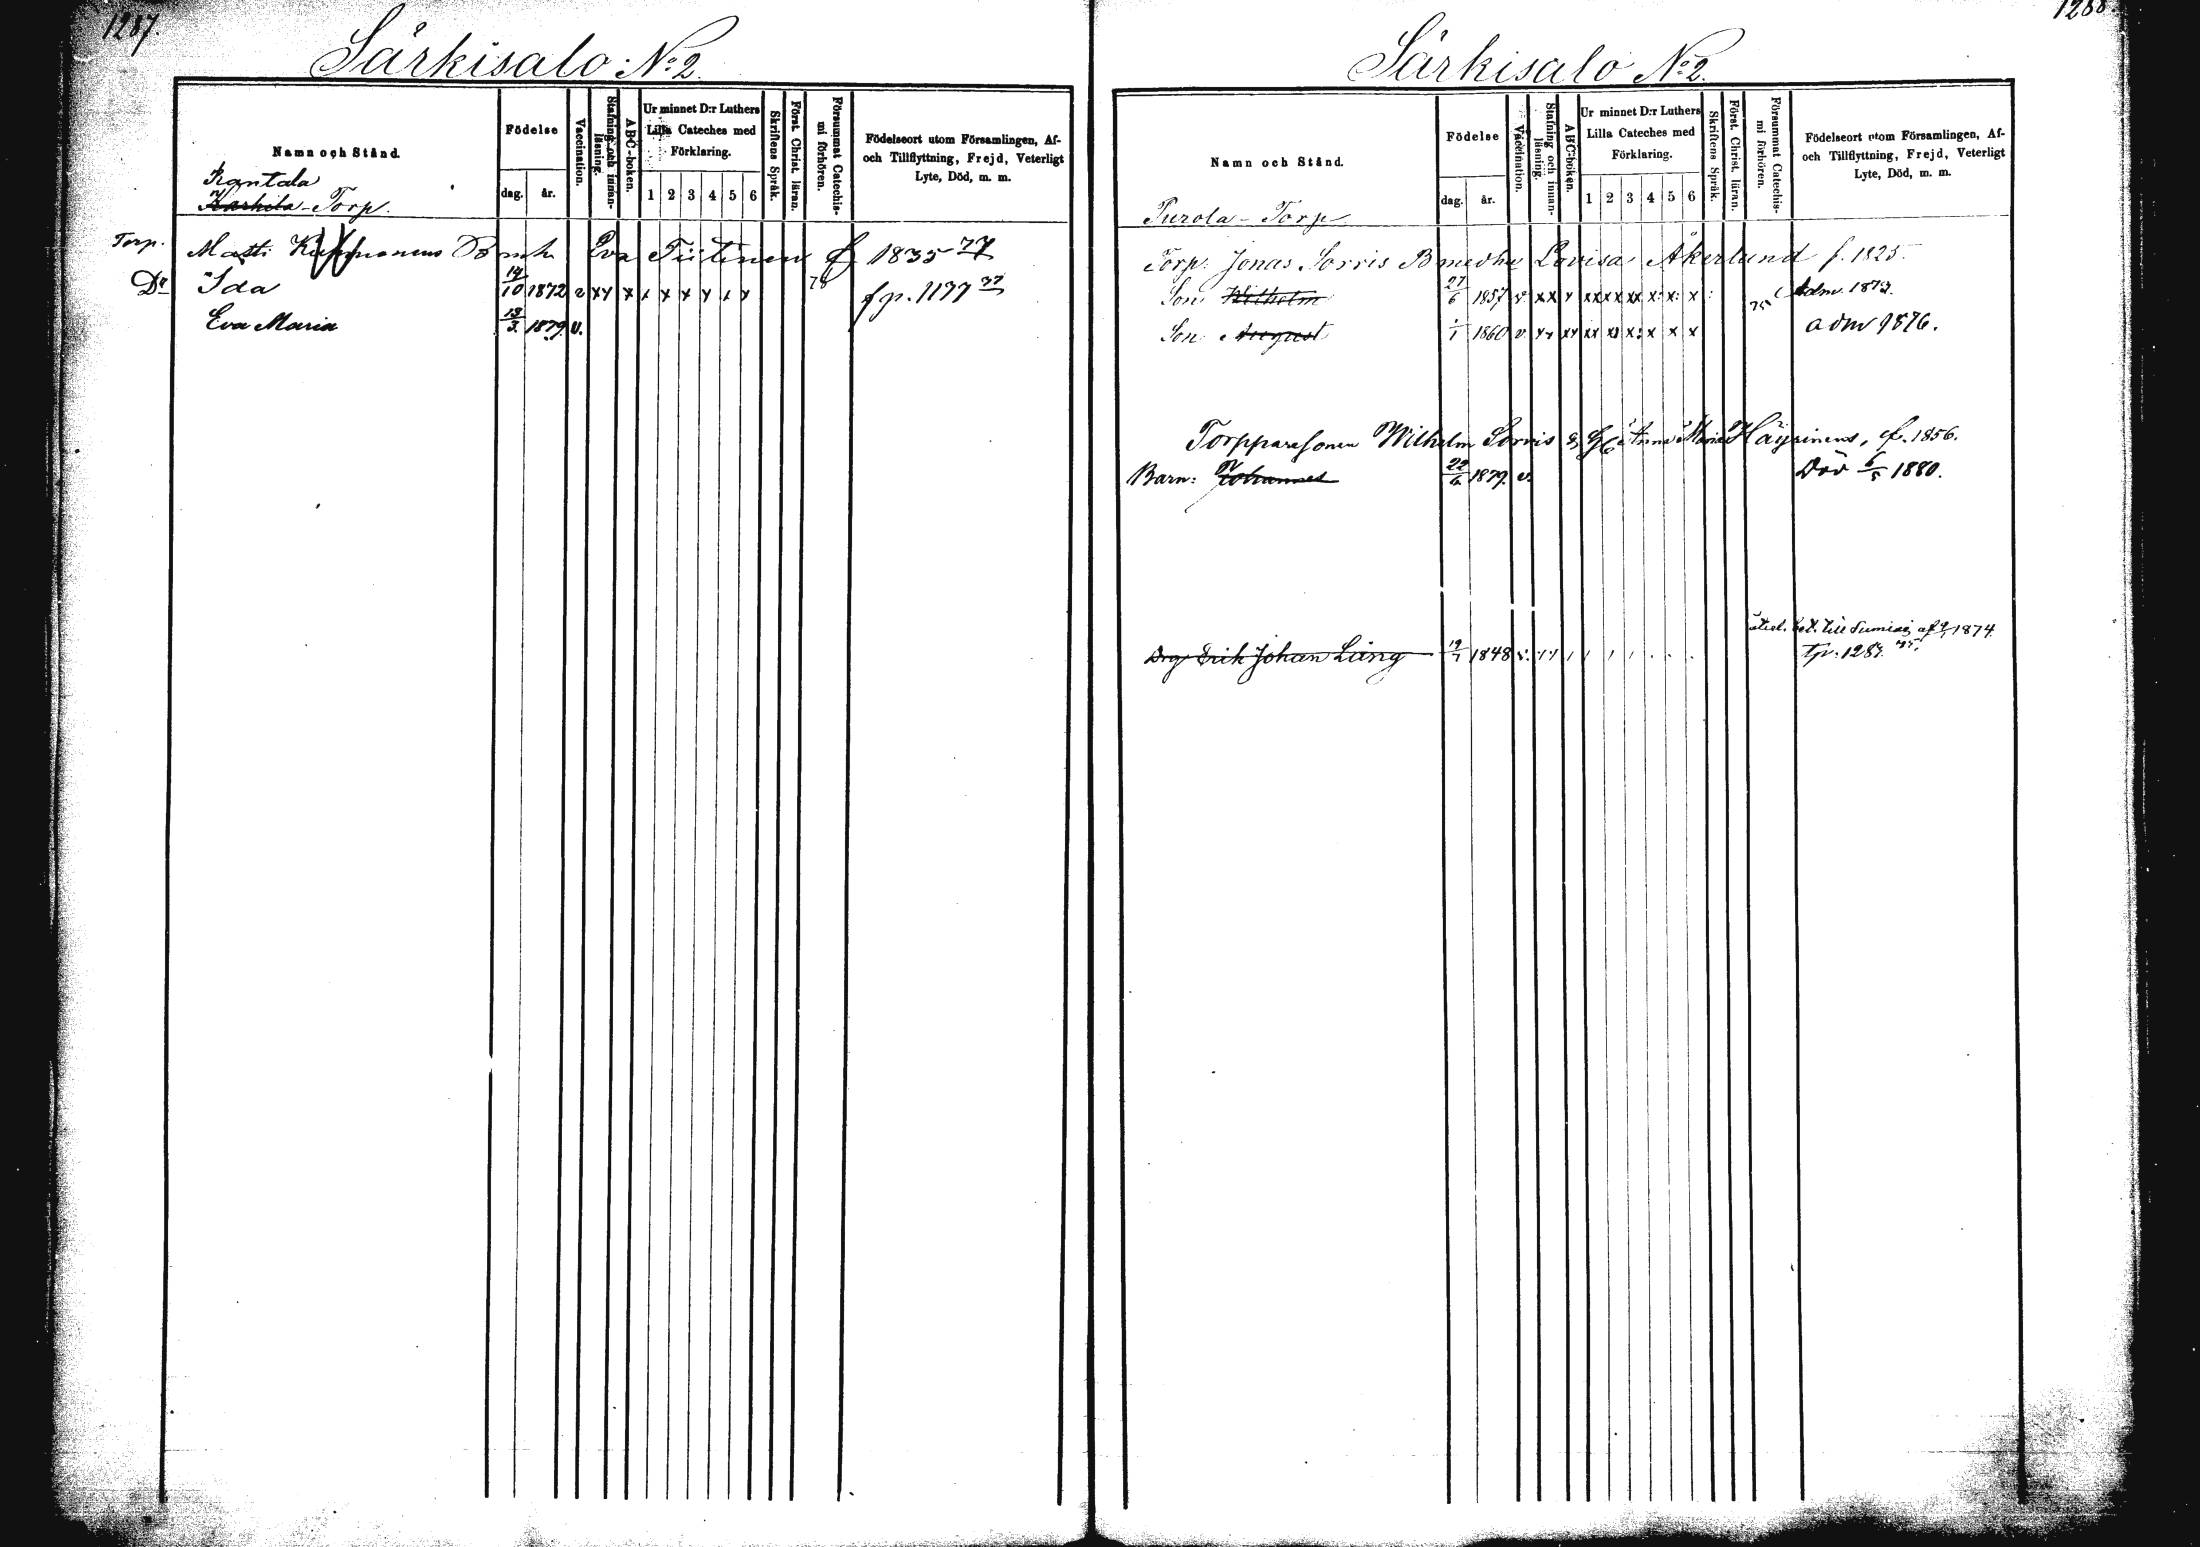 1287.
Särkisalo No 2.
Namn och Stånd.
Födelse
dag. år.
Vaccination.
Stafning och innan-läsning.
ABC-boken.
Ur minnet D:r Luthers
Lilla Cateches med
Förklaring.
1 2 3 4 5 6
Skriftens Språk.
Först. Christ. läran.
Försummat Catechis-mi förhören.
Födelseort utom Församlingen, Af-
och Tillflyttning, Frejd, Veterligt
Lyte, Död, m. m.
Rantala
Torp.
Torp. Matti Eva Tiitinen f 1835 77
Dr Ida 14/10 1872 v xy x x x x y x y 78 fp. 1177 77
Eva Maria 13/3 1879 v.
1288.
Särkisalo No 2.
Namn och Stånd.
Födelse
dag. år.
Vaccination.
Stafning och innan-läsning.
ABC-boken.
Ur minnet D:r Luthers
Lilla Cateches med
Förklaring.
1 2 3 4 5 6
Skriftens Språk.
Först. Christ. läran.
Försummat Catechis-mi förhören.
Födelseort utom Församlingen, Af-
och Tillflyttning, Frejd, Veterligt
Lyte, Död, m. m.
Purola-Torp
Torp. Jonas Sorris B medhu Lovisa Åkerlund f. 1825
Son Wilhelm 27/6 1857 v xx y xx xx xx x x x 75 adm.
Son August 1860 v yy xy xx x x x x x adm 1876.
Torpparesonen Wilhelm Sorris & H Anna Maria Häyrinens, f. 1856.
Barn: Johannes 22/6 1879. v. Död 6/5 1880.
Drg Erik Johan Läng 19/7 1848 v. 1874
tp. 1287.